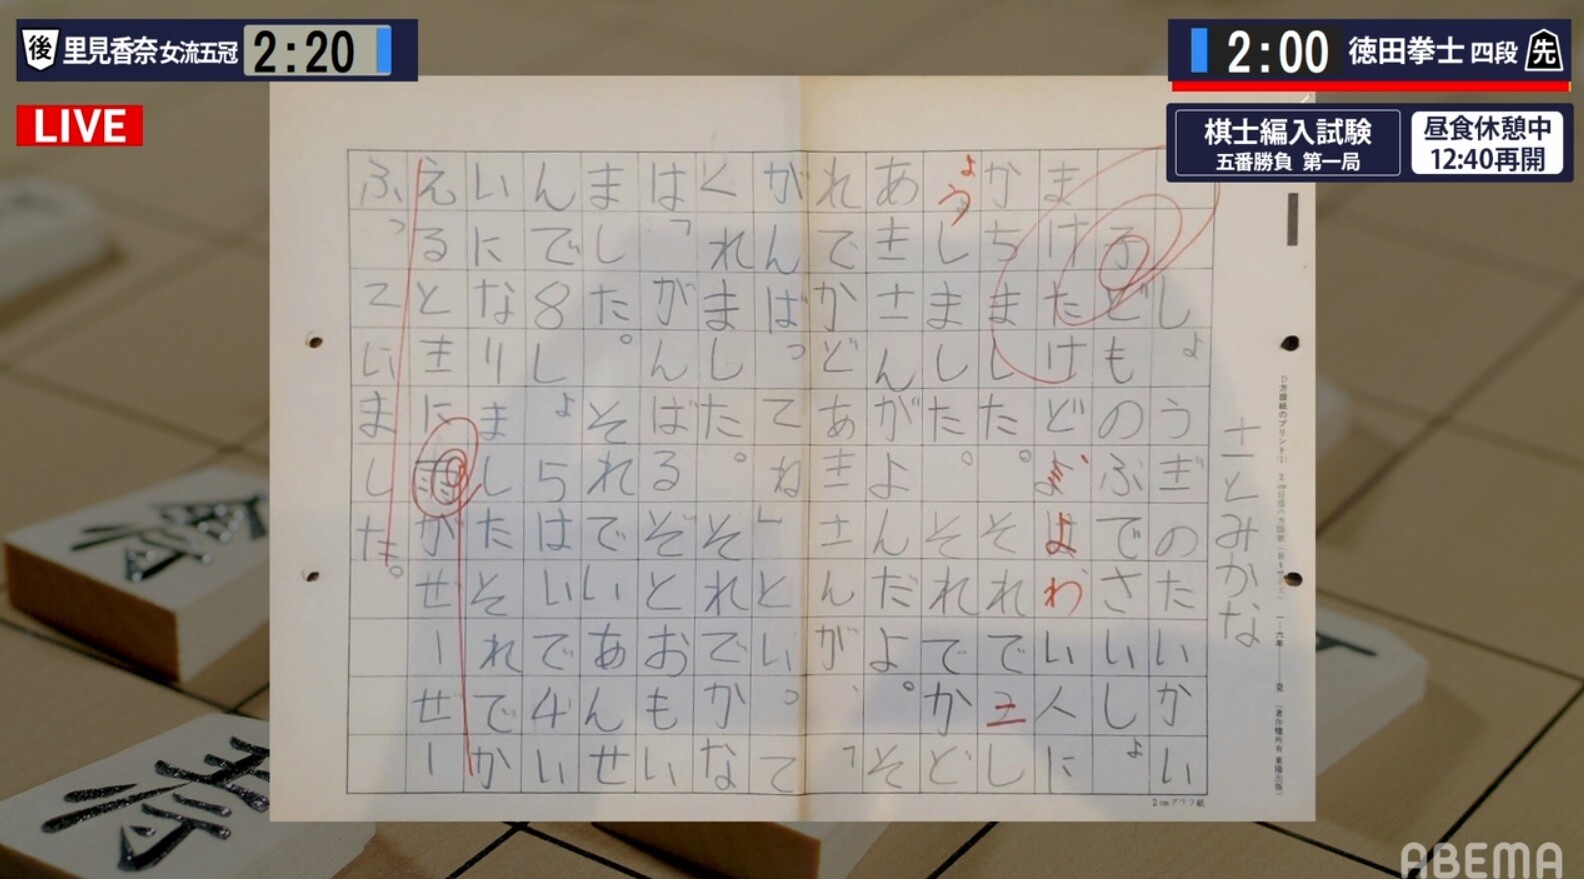 後 里見香奈 女流五冠 2:20
2:00 徳田拳士 四段 先
LIVE
棋士編入試験
五番勝負 第一局
昼食休憩中
12:40再開
さとみかな
しょうぎのたいかい
子どものぶでさいしょ
まけたけどよわい人に
かちました。それで土し
ょうしました。それでかど
あきさんがよんだよ。そ
れでかどあきさんが、「
がんばってね」といって
くれました。それでかな
は「がんばるぞとおもい
ました。それでいあんせ
んで8しょ5はいで4い
いになりましたそれでか
えるときに雨がせーせー
ふっていました。
2cmグラフ紙
ABEMA